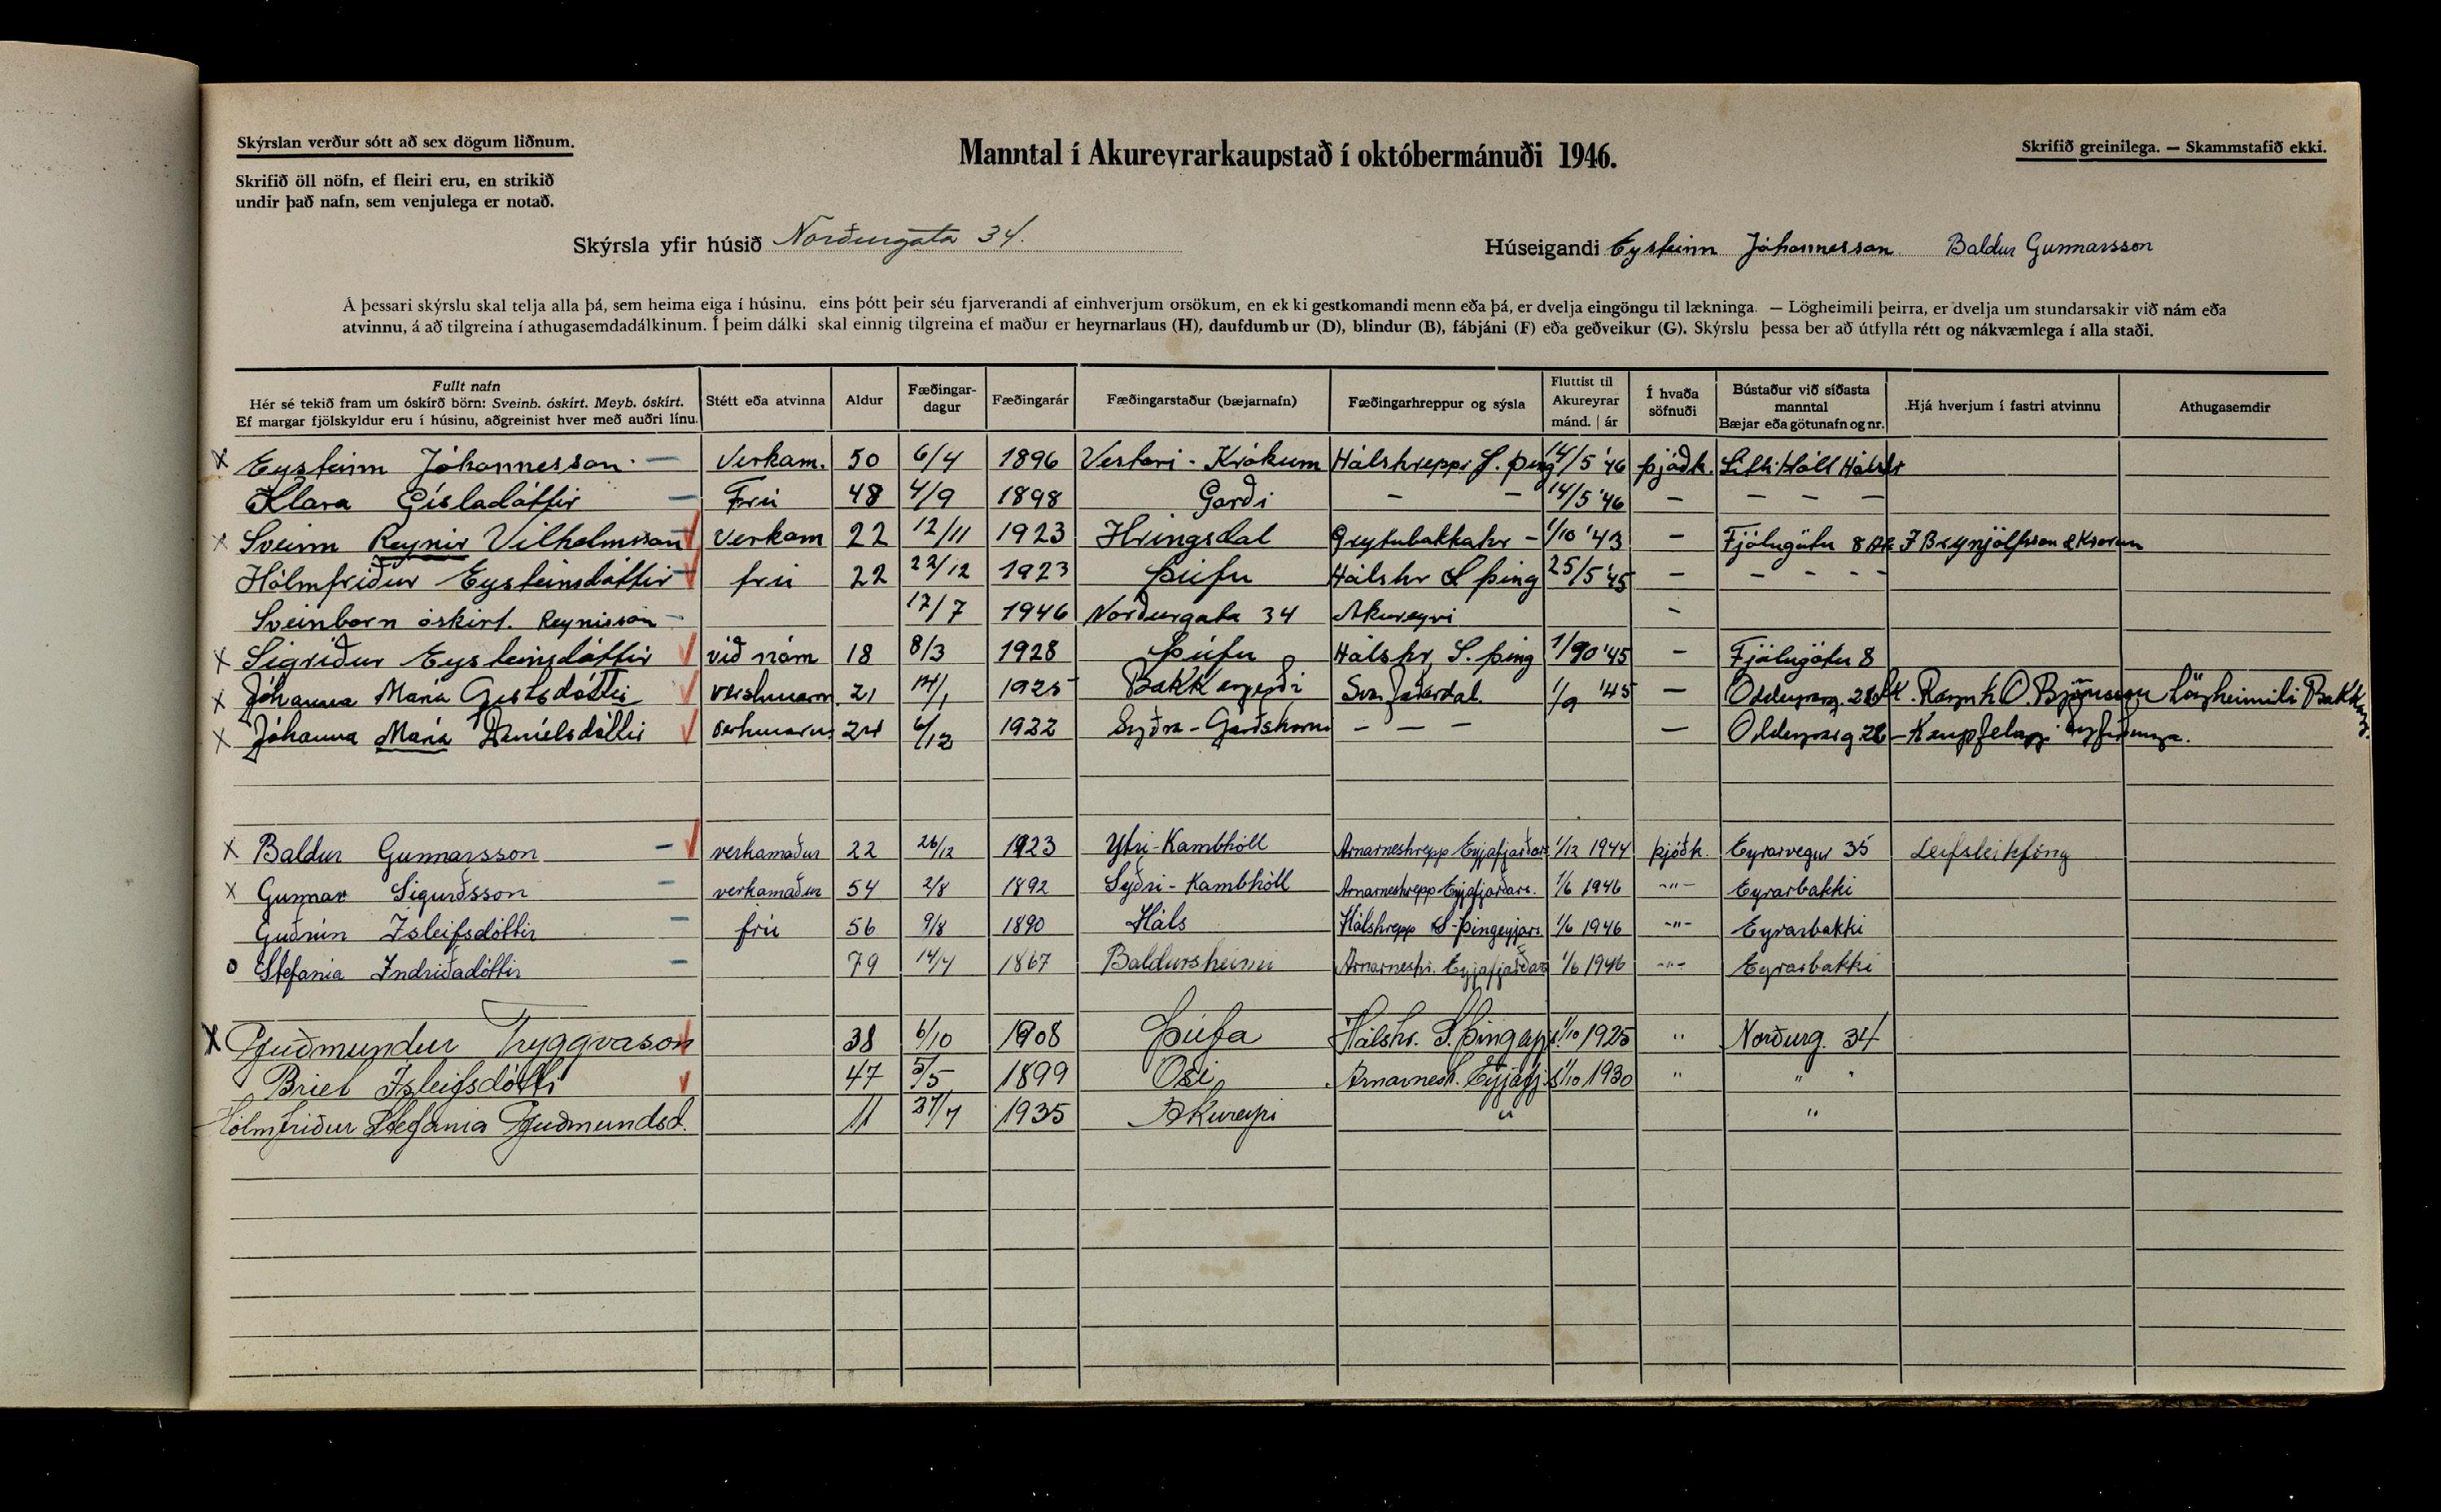 Skýrslan verður sótt að sex dögum liðnum.
Manntal í Akureyrarkaupstað í októbermánuði 1946.
Skrifið greinilega. — Skammstafið ekki.
Skrifið öll nöfn, ef fleiri eru, en strikið
undir það nafn, sem venjulega er notað.
Skýrsla yfir húsið Norðurgata 34.
Húseigandi Eysteinn Jóhannesson Baldur Gunnarsson
Á þessari skýrslu skal telja alla þá, sem heima eiga í húsinu, eins þótt þeir séu fjarverandi af einhverjum orsökum, en ekki gestkomandi menn eða þá, er dvelja eingöngu til lækninga. — Lögheimili þeirra, er dvelja um stundarsakir við nám eða
atvinnu, á að tilgreina í athugasemdadálkinum. Í þeim dálki skal einnig tilgreina ef maður er heyrnarlaus (H), daufdumbur (D), blindur (B), fábjáni (F) eða geðveikur (G). Skýrslu þessa ber að útfylla rétt og nákvæmlega í alla staði.
Fullt nafn
Hér sé tekið fram um óskírð börn: Sveinb. óskírt. Meyb. óskírt.
Ef margar fjölskyldur eru í húsinu, aðgreinist hver með auðri línu.
Stétt eða atvinna
Aldur
Fæðingar-
dagur
Fæðingarár
Fæðingarstaður (bæjarnafn)
Fæðingarhreppur og sýsla
Fluttist til
Akureyrar
mánd. | ár
Í hvaða
söfnuði
Bústaður við síðasta
manntal
Bæjar eða götunafn og nr.
Hjá hverjum í fastri atvinnu
Athugasemdir
x Eysteinn Jóhannesson — Verkam. 50 6/4 1896 Vestari-Krókum Hálshreppi S. þing 14/5 '46 þjóðk. Litli-Hóll Hálshr
Klara Gísladóttir — Frú 48 4/9 1898 Garði — — 14/5 '46 — — — —
x Sveinn Reynir Vilhelmsson Verkam 22 12/11 1923 Hringsdal Grytubakkahr — 1/10 '43 — Fjólugötu 8 Ak J Brynjólfsson & Kvaran
Hólmfríður Eysteinsdóttir frú 22 22/12 1923 Þúfu Hálshr S þing 25/5 '45 — — — — —
Sveinbarn óskírt. Reynisson — 17/7 1946 Norðurgata 34 Akureyri —
x Sigríður Eysteinsdóttir við nám 18 8/3 1928 Þúfu Hálshr, S. þing 1/10 '45 — Fjólugötu 8
x Jóhanna María Gestsdóttir 21 14/1 1925 Bakkagerði Svarfaðardal. 1/9 '45 — Oddeyrarg. 28 O. Björnsson Lögheimili Bakkag.
x Jóhanna María Daníelsdóttir 24 6/12 1922 Syðra-Garðshorn — — — — Oddeyrarg 28 — Kaupfelagi Eyfirðinga.
x Baldur Gunnarsson — verkamaður 22 26/12 1923 Ytri-Kambhóll Arnarneshrepp Eyjafjarðars. 1/12 1944 þjóðk. Eyrarvegur 35 Leifsleikföng
x Gunnar Sigurðsson — verkamaður 54 2/8 1892 Syðri-Kambhóll Arnarneshrepp Eyjafjarðars. 1/6 1946 -"- Eyrarbakki
Guðrún Ísleifsdóttir — frú 56 9/8 1890 Háls Hálshrepp S-Þingeyjars. 1/6 1946 -"- Eyrarbakki
o Stefanía Indriðadóttir — 79 14/4 1867 Baldursheimi Arnarneshr. Eyjafjarðars 1/6 1946 -"- Eyrarbakki
x Guðmundur Tryggvason 38 6/10 1908 Þúfa Hálshr. S. Þingeyjs. 1/10 1925 " Norðurg. 34
Bríet Ísleifsdóttir 47 5/5 1899 Ósi Arnarnesh. Eyjafj.s 1/10 1930 " " "
Hólmfríður Stefanía Guðmundsd. 11 27/7 1935 Akureyri " "